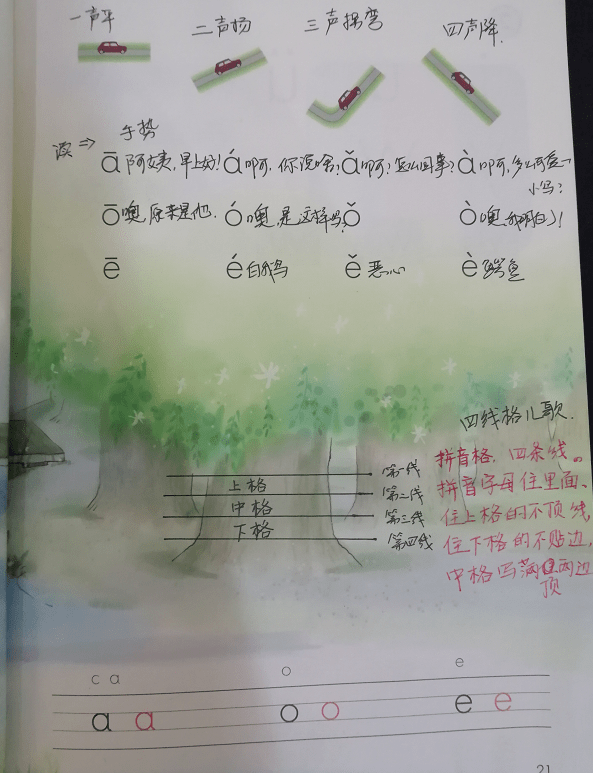 一声平 二声扬 三声拐弯 四声降
读⇒ 手势
ā 阿姨,早上好! á 啊,你说啥? ǎ 啊?怎么回事? à 啊,多么可爱一
小鸟?
ō 噢,原来是他. ó 噢,是这样吗? ǒ ò 噢,我明白了!
ē é 白鹅 ě 恶心 è 鳄鱼
四线格儿歌.
拼音格,四条线。
拼音字母住里面、
住上格的不顶线,
住下格的不贴边,
中格写满顶两边
第一线
上格
第二线
中格
第三线
下格
第四线
c a o e
a a o o e e
21